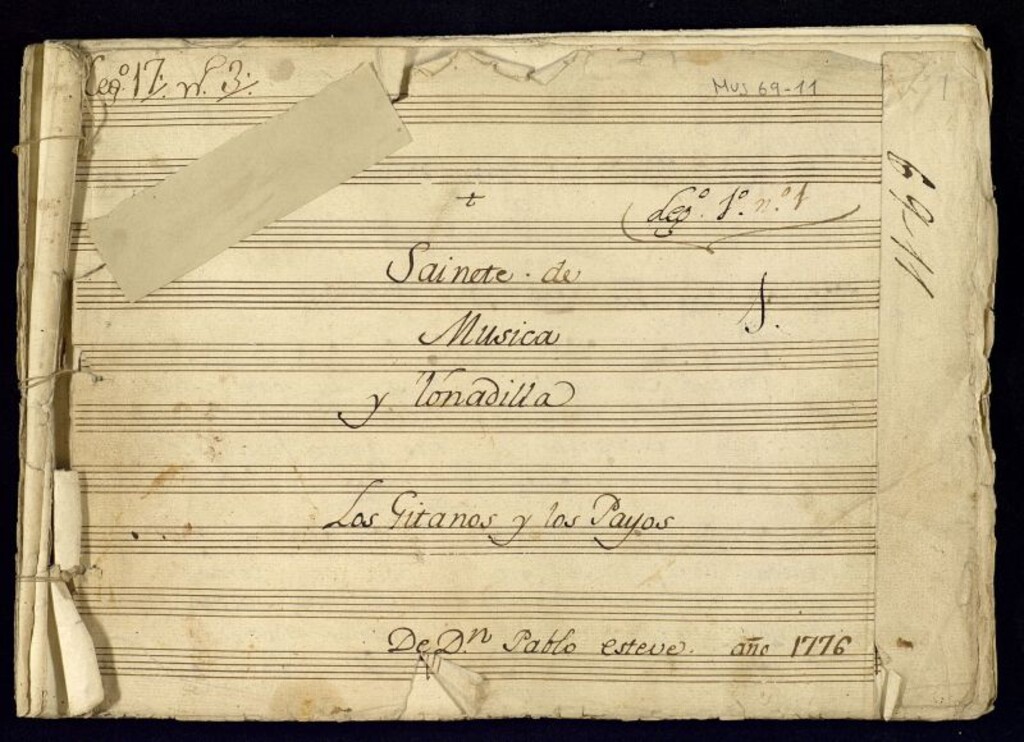 Leg.º 17. nº. 3.
Mus 69-11
69-11
Leg.º 1.º n.º 1
Sainete. de
1.
Musica
y tonadilla
Los Gitanos y los Payos
De D.n Pablo esteve. año 1776